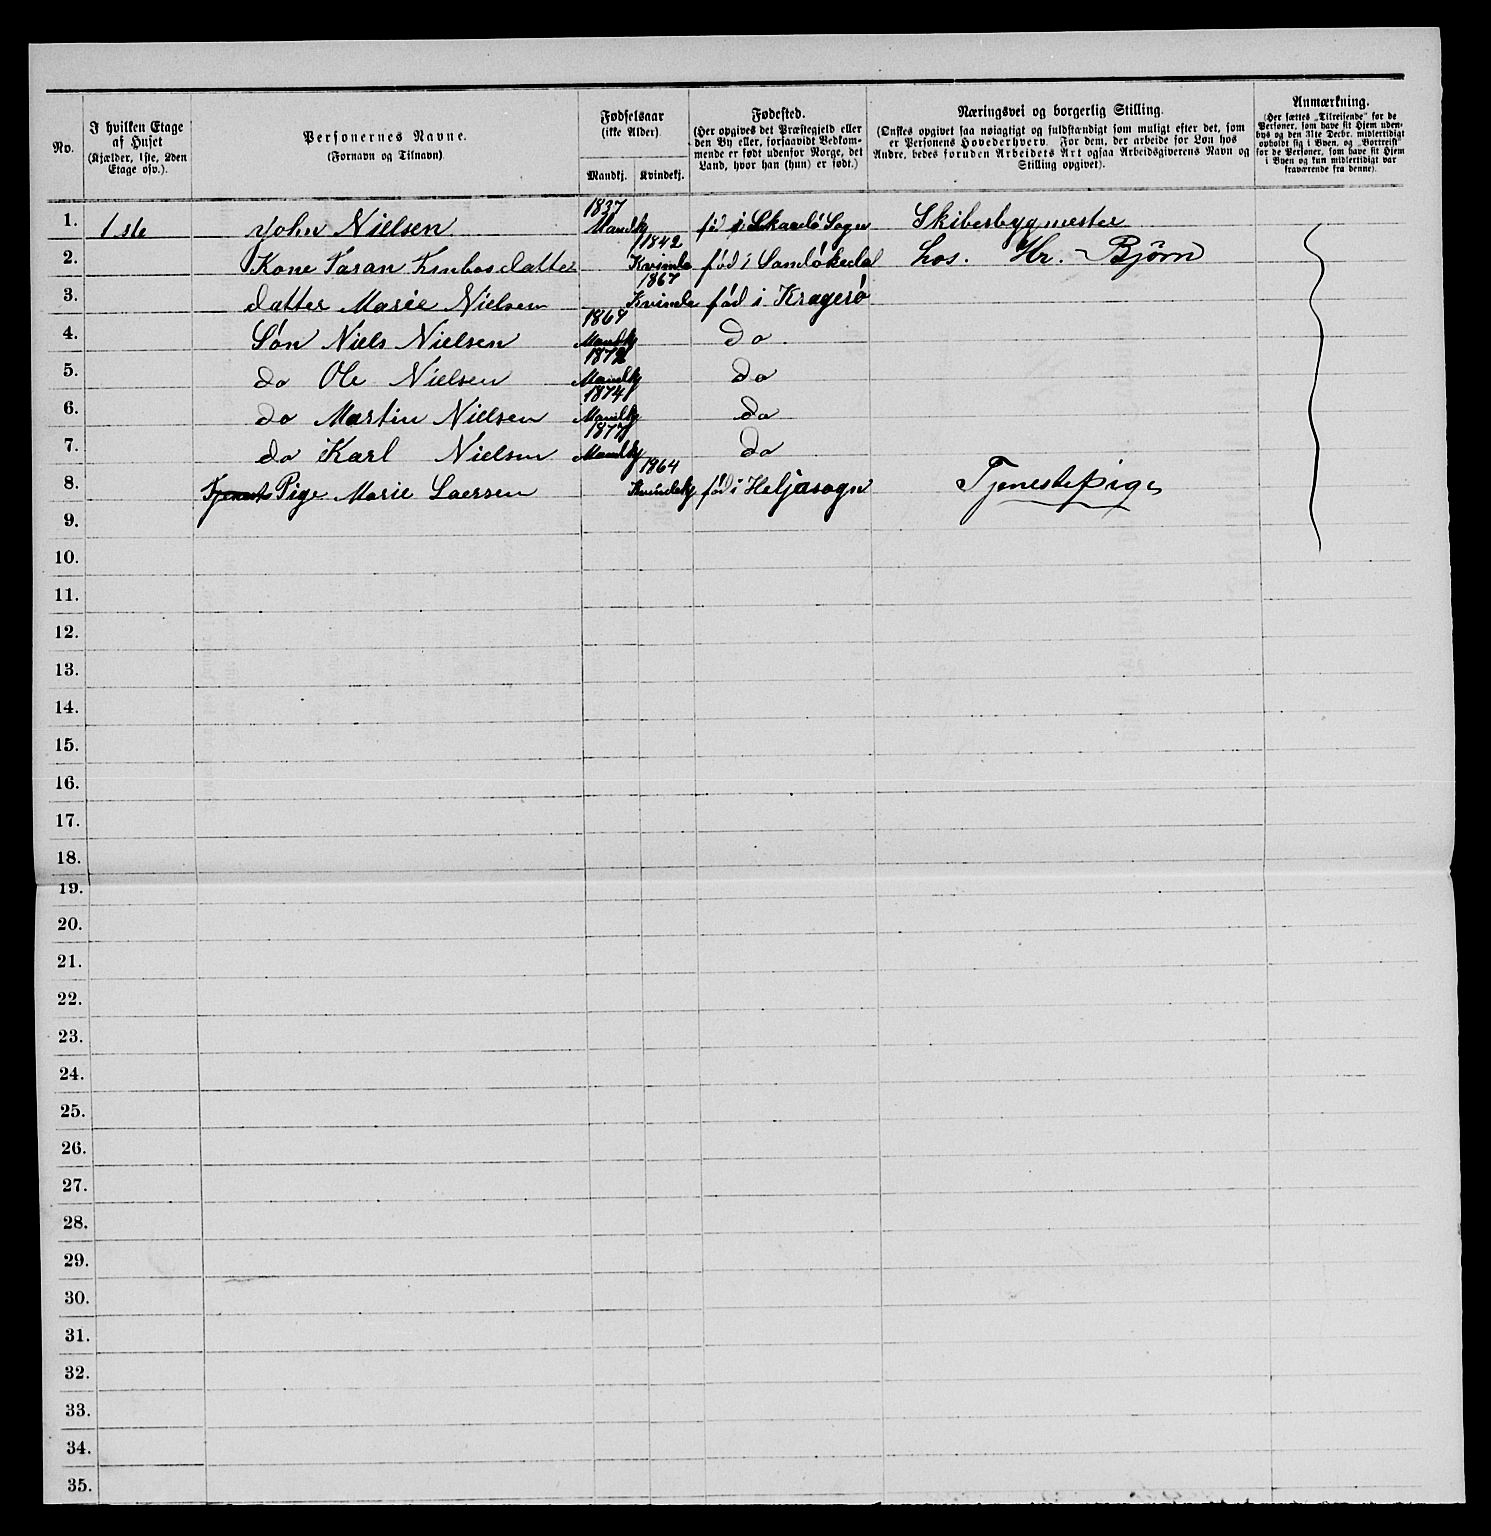 No.
I hvilken Etage
af Huset
(Kjælder, 1ste, 2den
Etage osv.).
Personernes Navne.
(Fornavn og Tilnavn)
Fødselsaar
(ikke Alder)
Mandkj. Kvindekj.
Fødested.
(Her opgives det Præstegjeld eller
den By eller, forsaavidt Vedkom-
mende er født udenfor Norge, det
Land, hvor han (hun) er født.)
Næringsvei og borgerlig Stilling.
(Ønskes opgivet saa nøiagtigt og fuldstændigt som muligt efter det, som
er Personens Hovederhverv. For dem, der arbeide for Løn hos
Andre, bedes foruden Arbeidets Art ogsaa Arbeidsgiverens Navn og
Stilling opgivet).
Anmærkning.
(Her sættes „Tilreisende“ for de
Personer, som have sit Hjem uden-
bys og den 31te Decbr. midlertidigt
opholdt sig i Byen, og „Bortreist“
for de Personer, som have sit Hjem
i Byen og kun midlertidigt var
fraværende fra denne).
1. 1ste John Nielsen 1837 Mandkj fø i Sogn Skibesbygmester
2. Kone 1842 Kvinde fød i hos. Hr. Bjørn
3. datter Marie Nielsen 1867 Kvinde fød i Kragerø
4. Søn Niels Nielsen Mandkj do
5. do Ole Nielsen 1872 Mandkj do
6. do Martin Nielsen 1874 Mandkj do
7. do Karl Nielsen 1877 Mandkj do
8. Pige Marie Laersen 1864 Kvindekj fød i Heljasogn Tjenestepige
9.
10.
11.
12.
13.
14.
15.
16.
17.
18.
19.
20.
21.
22.
23.
24.
25.
26.
27.
28.
29.
30.
31.
32.
33.
34.
35.